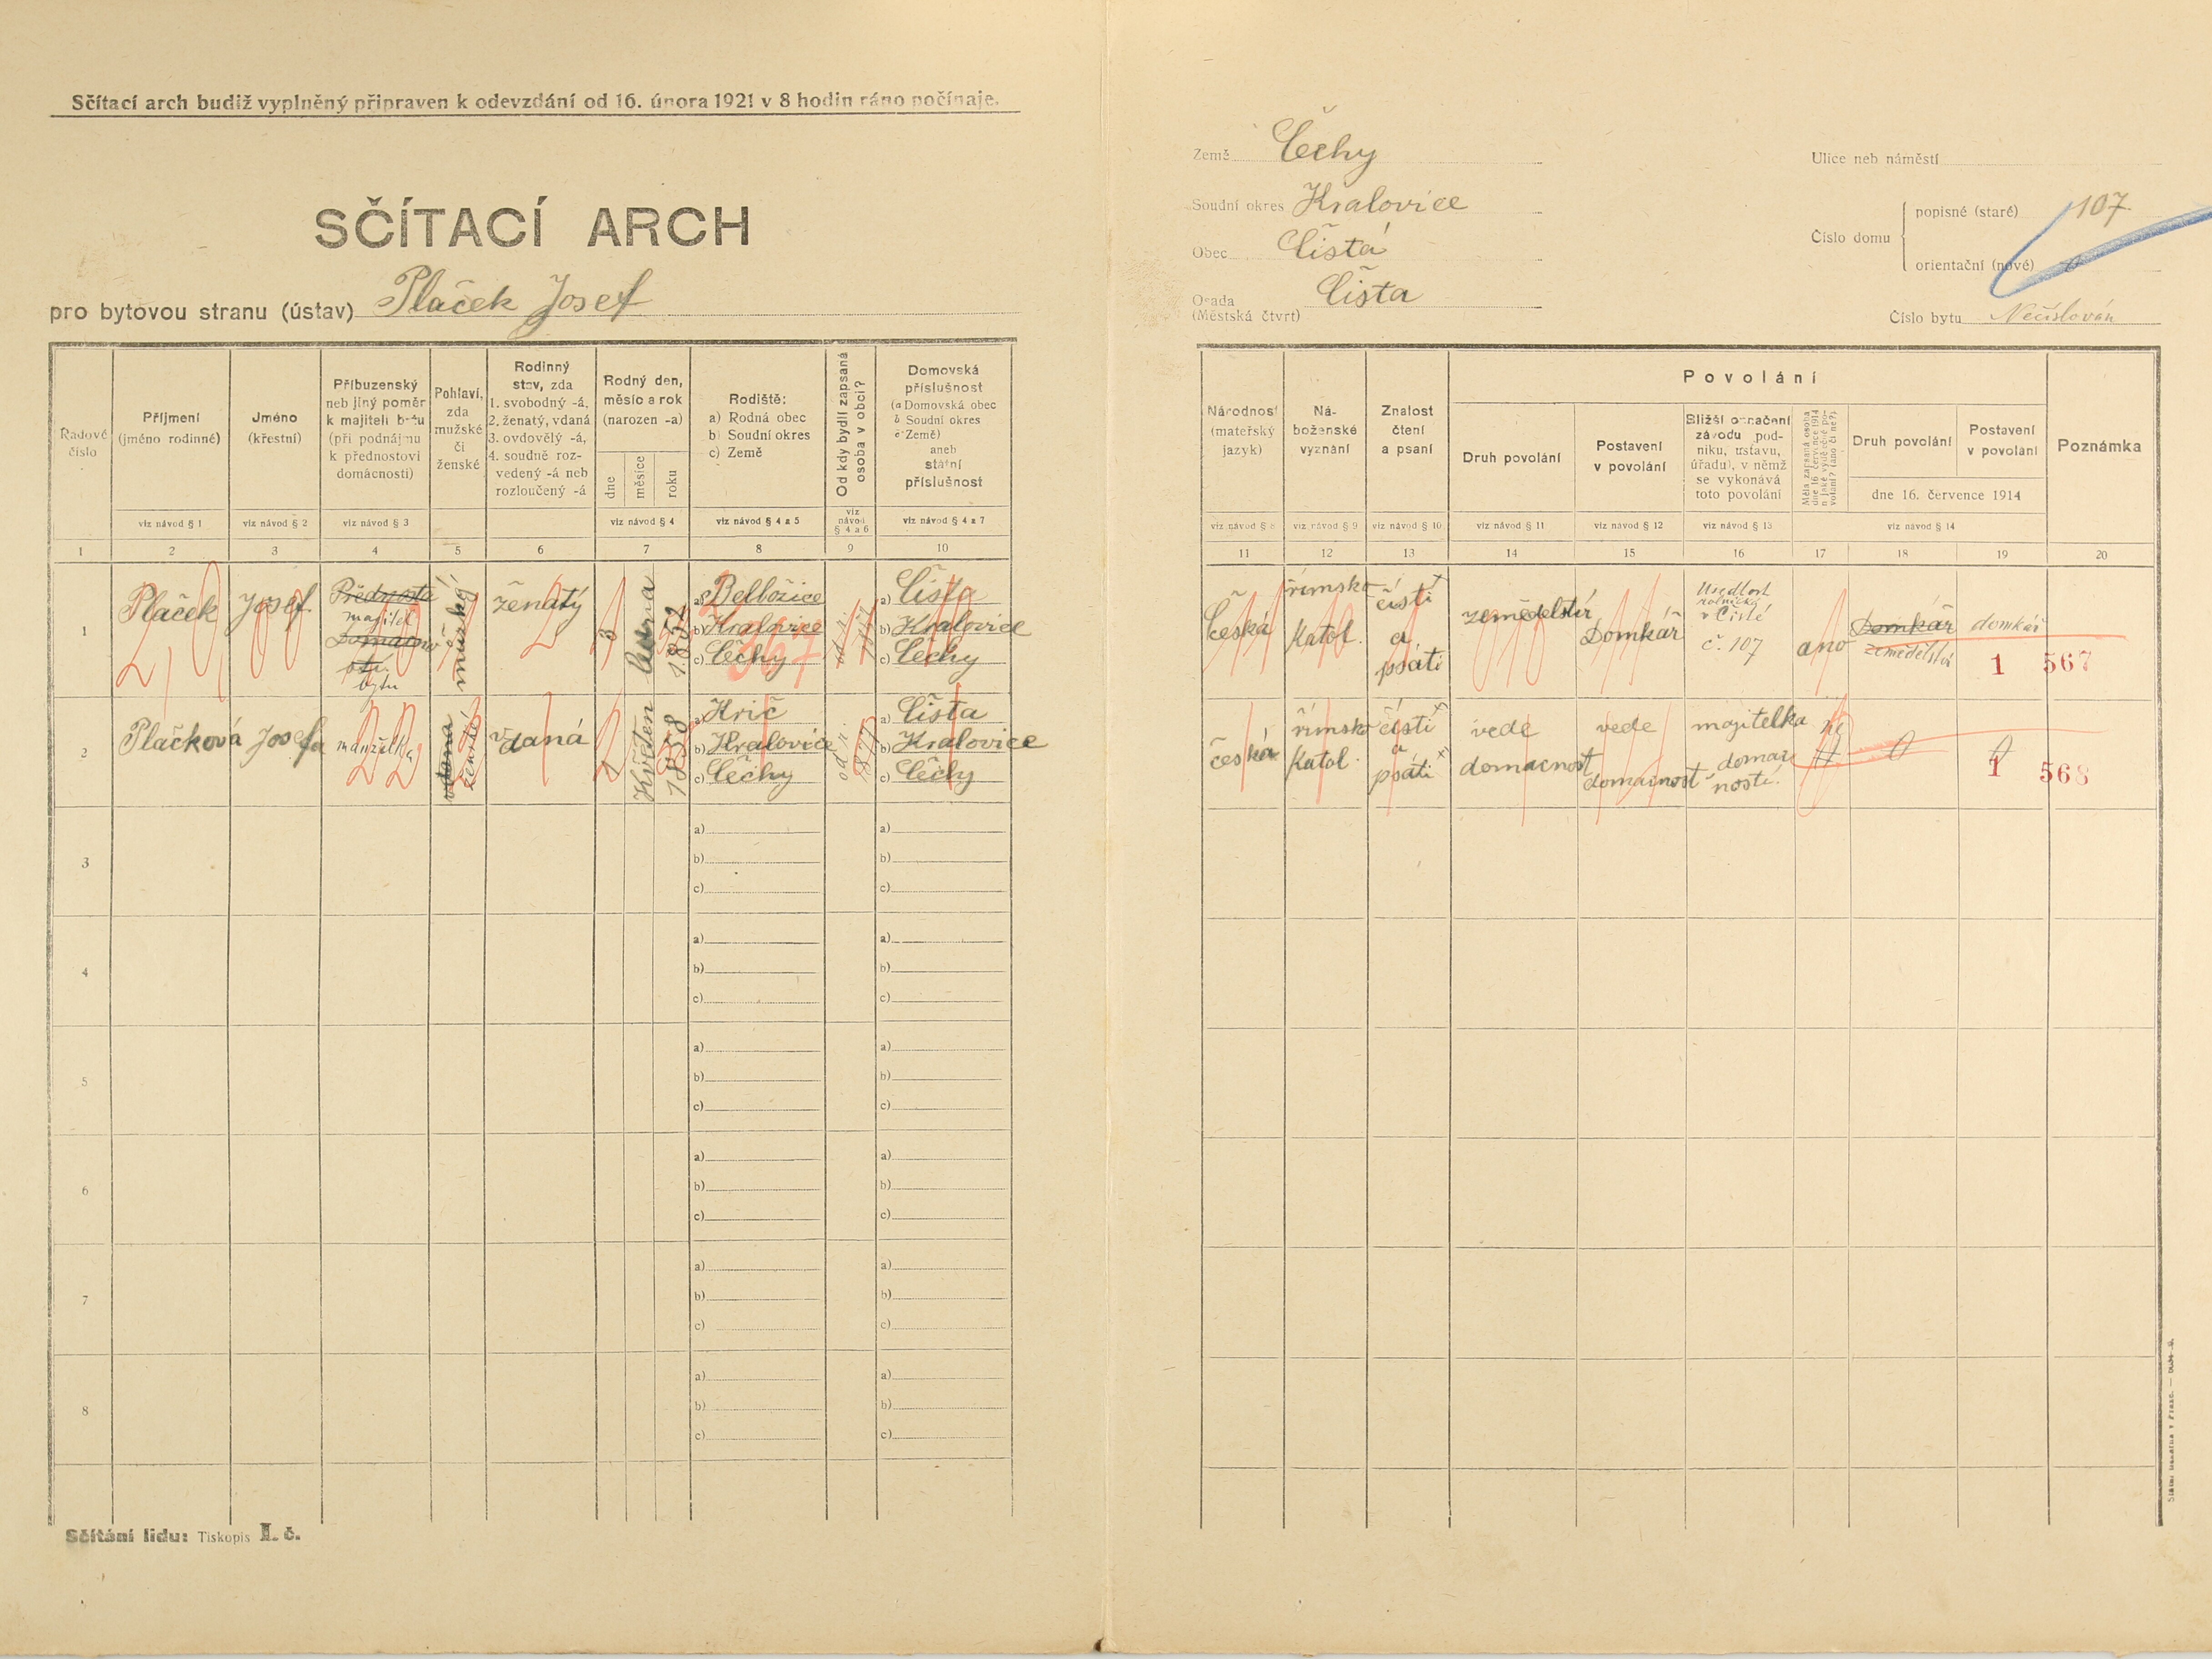 Sčítací arch budiž vyplněný připraven k odevzdání od 16. února 1921 v 8 hodin ráno počínaje.
SČÍTACÍ ARCH
pro bytovou stranu (ústav) Plaček Josef
Země Čechy
Soudní okres Kralovice
Obec Čistá
Osada Čista
(Městská čtvrt)
Ulice neb náměstí
Číslo domu
popisné (staré) 107
orientační (nové)
Číslo bytu Nečíslován
Řadové číslo
1
Příjmení
(jméno rodinné)
viz návod § 1
2
Jméno
(křestní)
viz návod § 2
3
Příbuzenský
neb jiný poměr
k majiteli bytu
(při podnájmu
k přednostovi
domácnosti)
viz návod § 3
4
Pohlaví,
zda
mužské
či
ženské
5
Rodinný
stav, zda
1. svobodný -á,
2. ženatý, vdaná
3. ovdovělý -á,
4. soudně roz-
vedený -á neb
rozloučený -á
6
Rodný den,
měsíc a rok
(narozen -a)
dne
měsíce
roku
viz návod § 4
7
Rodiště:
a) Rodná obec
b) Soudní okres
c) Země
viz návod § 4 a 5
8
Od kdy bydlí zapsaná
osoba v obci?
viz
návod
§ 4 a 6
9
Domovská
příslušnost
(a Domovská obec
b Soudní okres
c Země)
aneb
státní
příslušnost
viz návod § 4 a 7
10
Národnost
(mateřský
jazyk)
viz návod § 8
11
Ná-
boženské
vyznání
viz návod § 9
12
Znalost
čtení
a psaní
viz návod § 10
13
Povolání
Druh povolání
viz návod § 11
14
Postavení
v povolání
viz návod § 12
15
Bližší označení
závodu, pod-
niku, ústavu,
úřadu, v němž
se vykonává
toto povolání
viz návod § 13
16
Měla zapsaná osoba
dne 16. července 1914
nějaké výdělečné po-
volání? (ano či ne?)
17
Druh povolání
18
Postavení
v povolání
19
dne 16. července 1914
viz návod § 14
Poznámka
20
1
Plaček
Josef
Přednosta
majitel
bytu
mužské
ženatý
3
1852
a) Belbožice
b) Kralovice
c) Čechy
367
a) Čista
b) Kralovice
c) Čechy
Česká
římsko
Katol.
čísti
a
psáti
zemědelství
Domkář
Usedlost
rolnická
v Čisté
č. 107
ano
Domkář
zemědelství
domkář
1 567
2
Plačková
Josefa
manželka
vdaná
Květen
1858
a) Hrič
b) Kralovice
c) Čechy
od r.
1877
a) Čista
b) Kralovice
c) Čechy
česká
římsko
Katol.
čísti
a
psáti
vede
domacnost
vede
domacnost
majitelka
domac
nosti.
ne
0
0
1 568
3
a)
b)
c)
a)
b)
c)
4
a)
b)
c)
a)
b)
c)
5
a)
b)
c)
a)
b)
c)
6
a)
b)
c)
a)
b)
c)
7
a)
b)
c)
a)
b)
c)
8
a)
b)
c)
a)
b)
c)
Sčítání lidu: Tiskopis I. č.